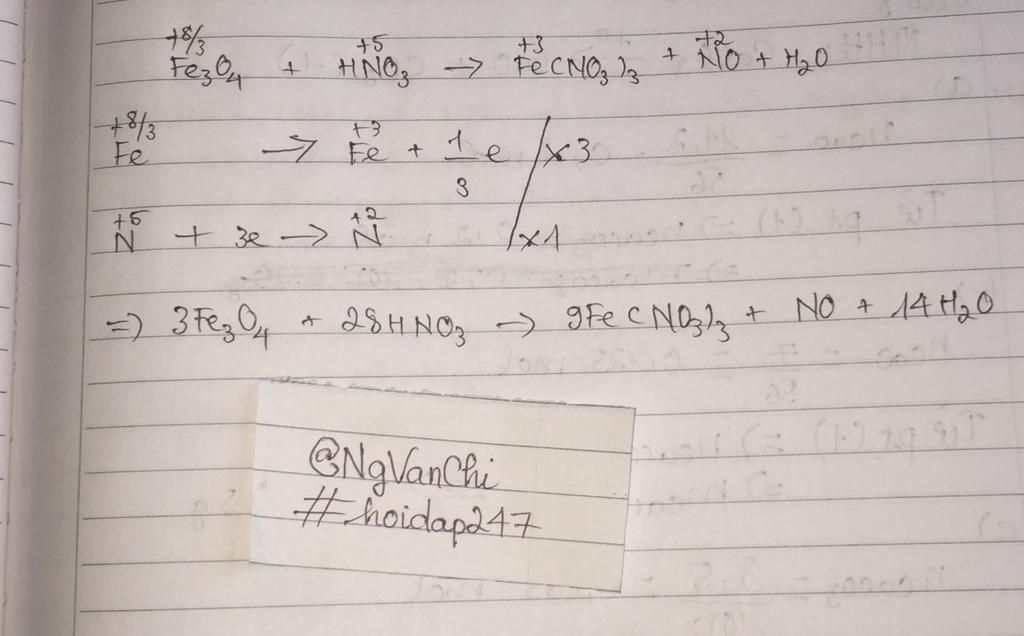 +8/3 +5 +3 +2
Fe3O4 + HNO3 → Fe(NO3)3 + NO + H2O
+8/3 +3
Fe → Fe + 1/3 e / x3
+5 +2
N + 3e → N / x1
=) 3Fe3O4 + 28HNO3 → 9Fe(NO3)3 + NO + 14H2O
@NgVanChi
#hoidap247